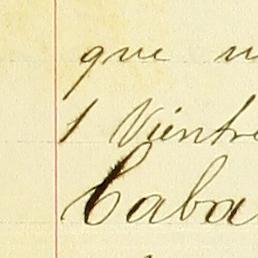 que
1 Vientre
Caba